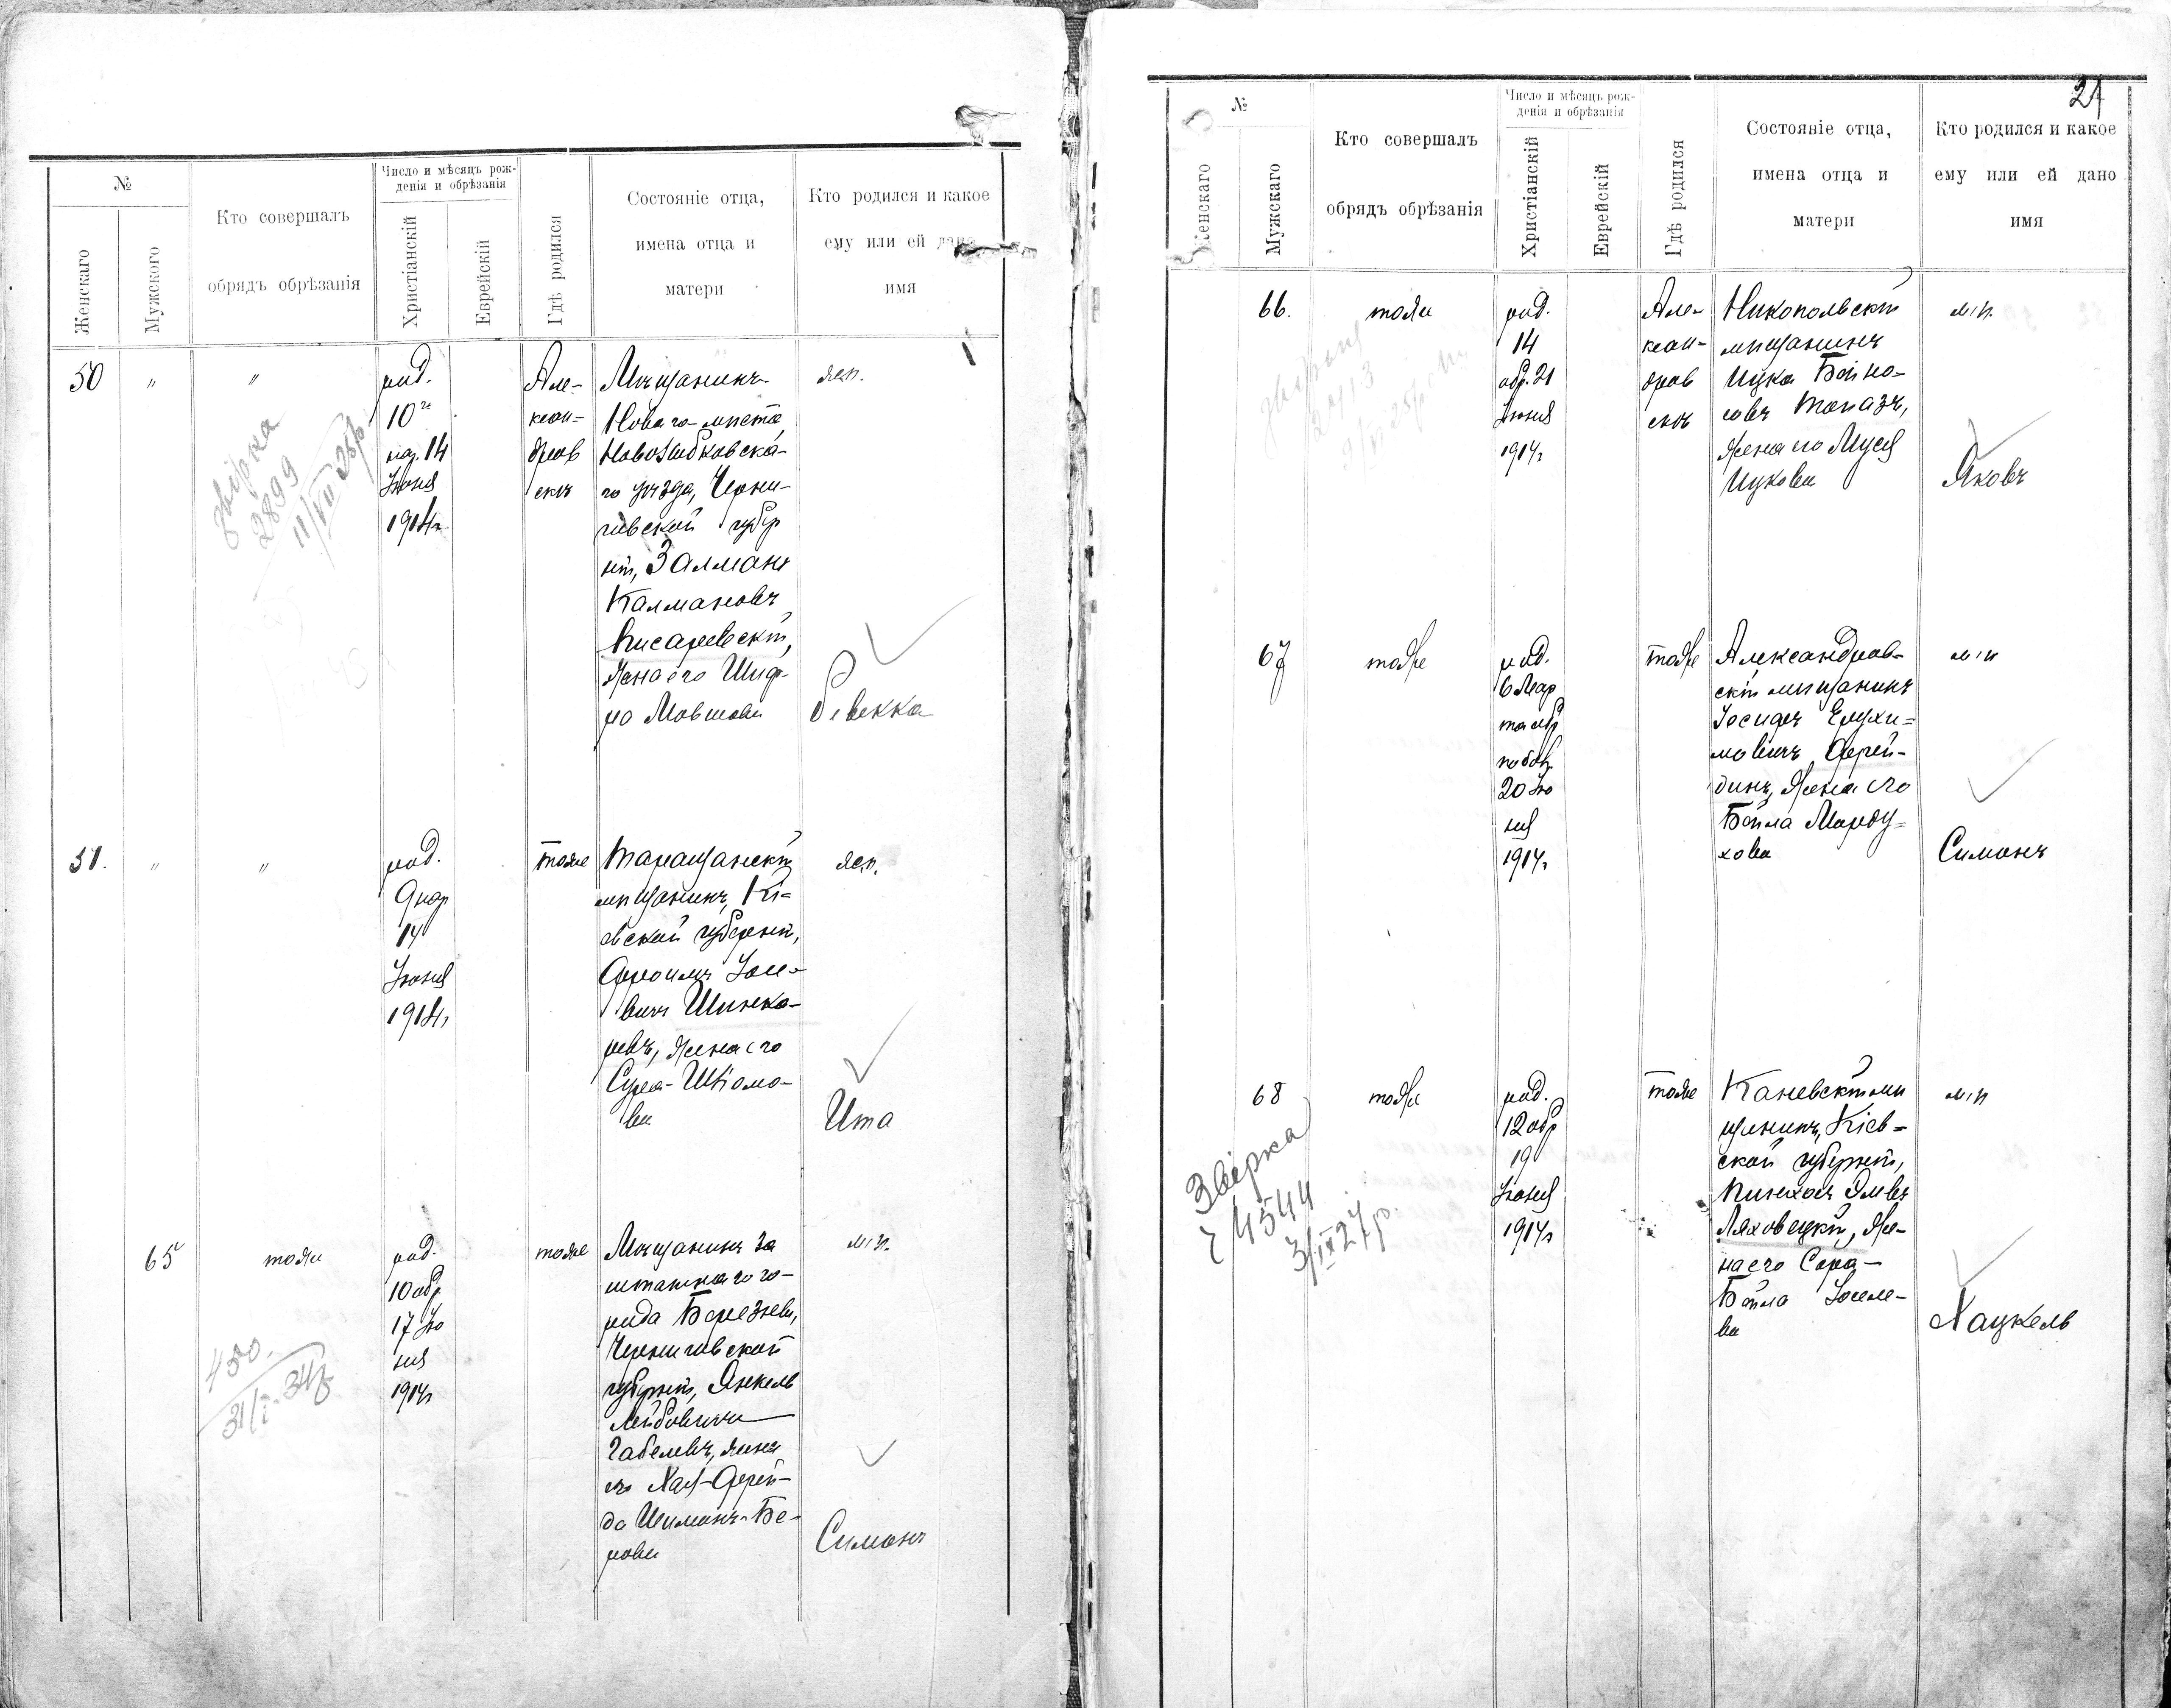 №
Женскаго
Мужского
Кто совершалъ
обрядъ обрѣзанія
Число и мѣсяцъ рож-
денія и обрѣзанія
Христіанскій
Еврейскій
Гдѣ родился
Состояніе отца,
имена отца и
матери
Кто родился и какое
ему или ей дано
имя
50 " "
звірка
2899
род.
10
нар. 14
Іюня
1914г.
Але-
ксан-
дров
скъ
Мѣщанинъ
Новаго-мѣста,
Новозыбковска-
го уѣзда, Черни-
говской губер
ніи, Залманъ
Калмановъ
Писаревскій,
жена его Шиф-
ра Мовшова
жен.
Ревекка
51. " "
род.
9 нар
14
Іюня
1914г.
тоже
Таращанскій
мѣщанинъ, Кі-
евской губерніи,
Фроимъ Іосе-
вичъ Шинка-
ревъ, жена его
Сура-Шломо-
ва
жен.
Ита
65
тоже
450.
род.
10 обр.
17 Ію
ня
1914г
тоже
Мѣщанинъ за
штатнаго го-
рода Березны,
Черниговской
губерніи, Янкель
Лейбовичъ
Габелевъ, жена
его Хая-Фрей-
да Шимонъ-Бе-
рова
м.п.
Симонъ
27
№
Женскаго
Мужскаго
Кто совершалъ
обрядъ обрѣзанія
Число и мѣсяцъ рож-
денія и обрѣзанія
Христіанскій
Еврейскій
Гдѣ родился
Состояніе отца,
имена отца и
матери
Кто родился и какое
ему или ей дано
имя
66.
тоже
род.
14
обр. 21
Іюня
1914г
Але-
ксан-
дров
скъ
Никопольскій
мѣщанинъ
Ицка Бейно-
совъ Топазъ,
жена его Муся
Ицкова
м.п.
Яковъ
67
тоже
род.
6 Мар
та обр
20 Ію
ня
1914г
тоже
Александров-
скій мѣщанинъ
Іосифъ Ерухи-
мовичъ Фрей-
динъ, жена его
Бейла Морду-
хова
м.п
Симонъ
68
тоже
Звірка
4544
3/IX 27р.
род.
12 обр
19
Іюня
1914г
тоже
Каневскій мѣ
щанинъ, Кіев-
ской губерніи,
Пинхосъ
Ляховецкій, же-
на его Сора-
Бейла Іоселе-
ва
м.п
Хацкель